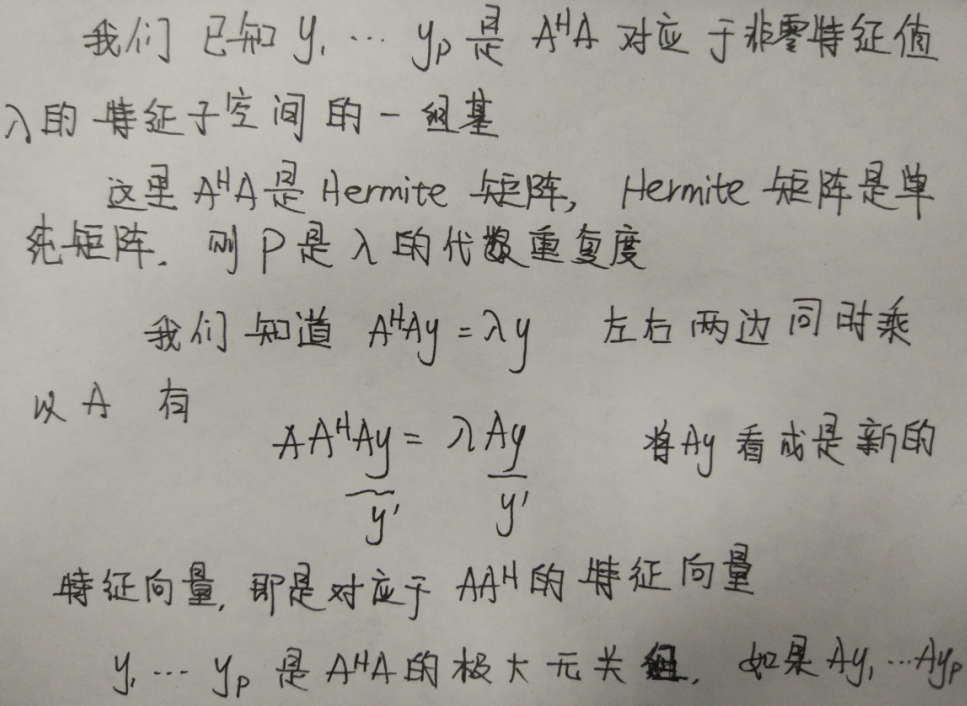 我们已知 y₁ ⋯ yₚ 是 AᴴA 对应于非零特征值
λ的特征子空间的一组基
这里 AᴴA是 Hermite 矩阵, Hermite 矩阵是单
纯矩阵. 则 P 是 λ 的代数重复度
我们知道 AᴴAy = λy 左右两边同时乘
以 A 有
AAᴴAy = λAy 将Ay看成是新的
y' y'
特征向量, 即是对应于 AAᴴ的特征向量
y₁ ⋯ yₚ 是 AᴴA的极大无关组. 如果 Ay₁ ⋯Ayₚ